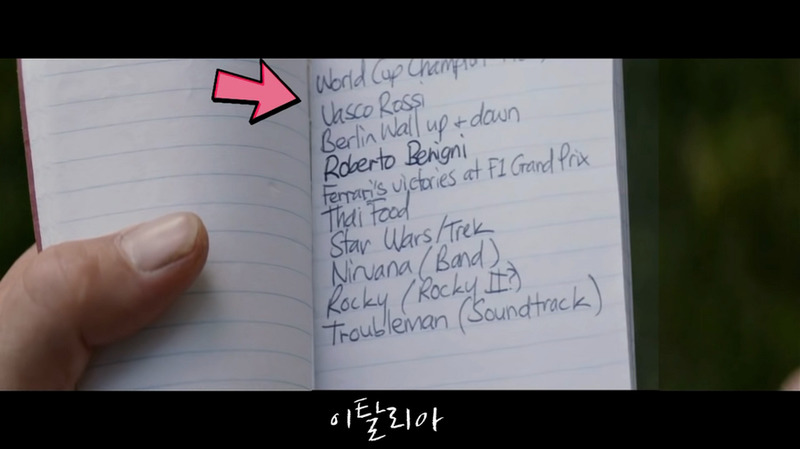 World Cup Champion
Vasco Rossi
Berlin Wall up + down
Roberto Benigni
Ferrari's victories at F1 Grand Prix
Thai Food
Star Wars/Trek
Nirvana (Band)
Rocky (Rocky II?)
Troubleman (Soundtrack)
이탈리아